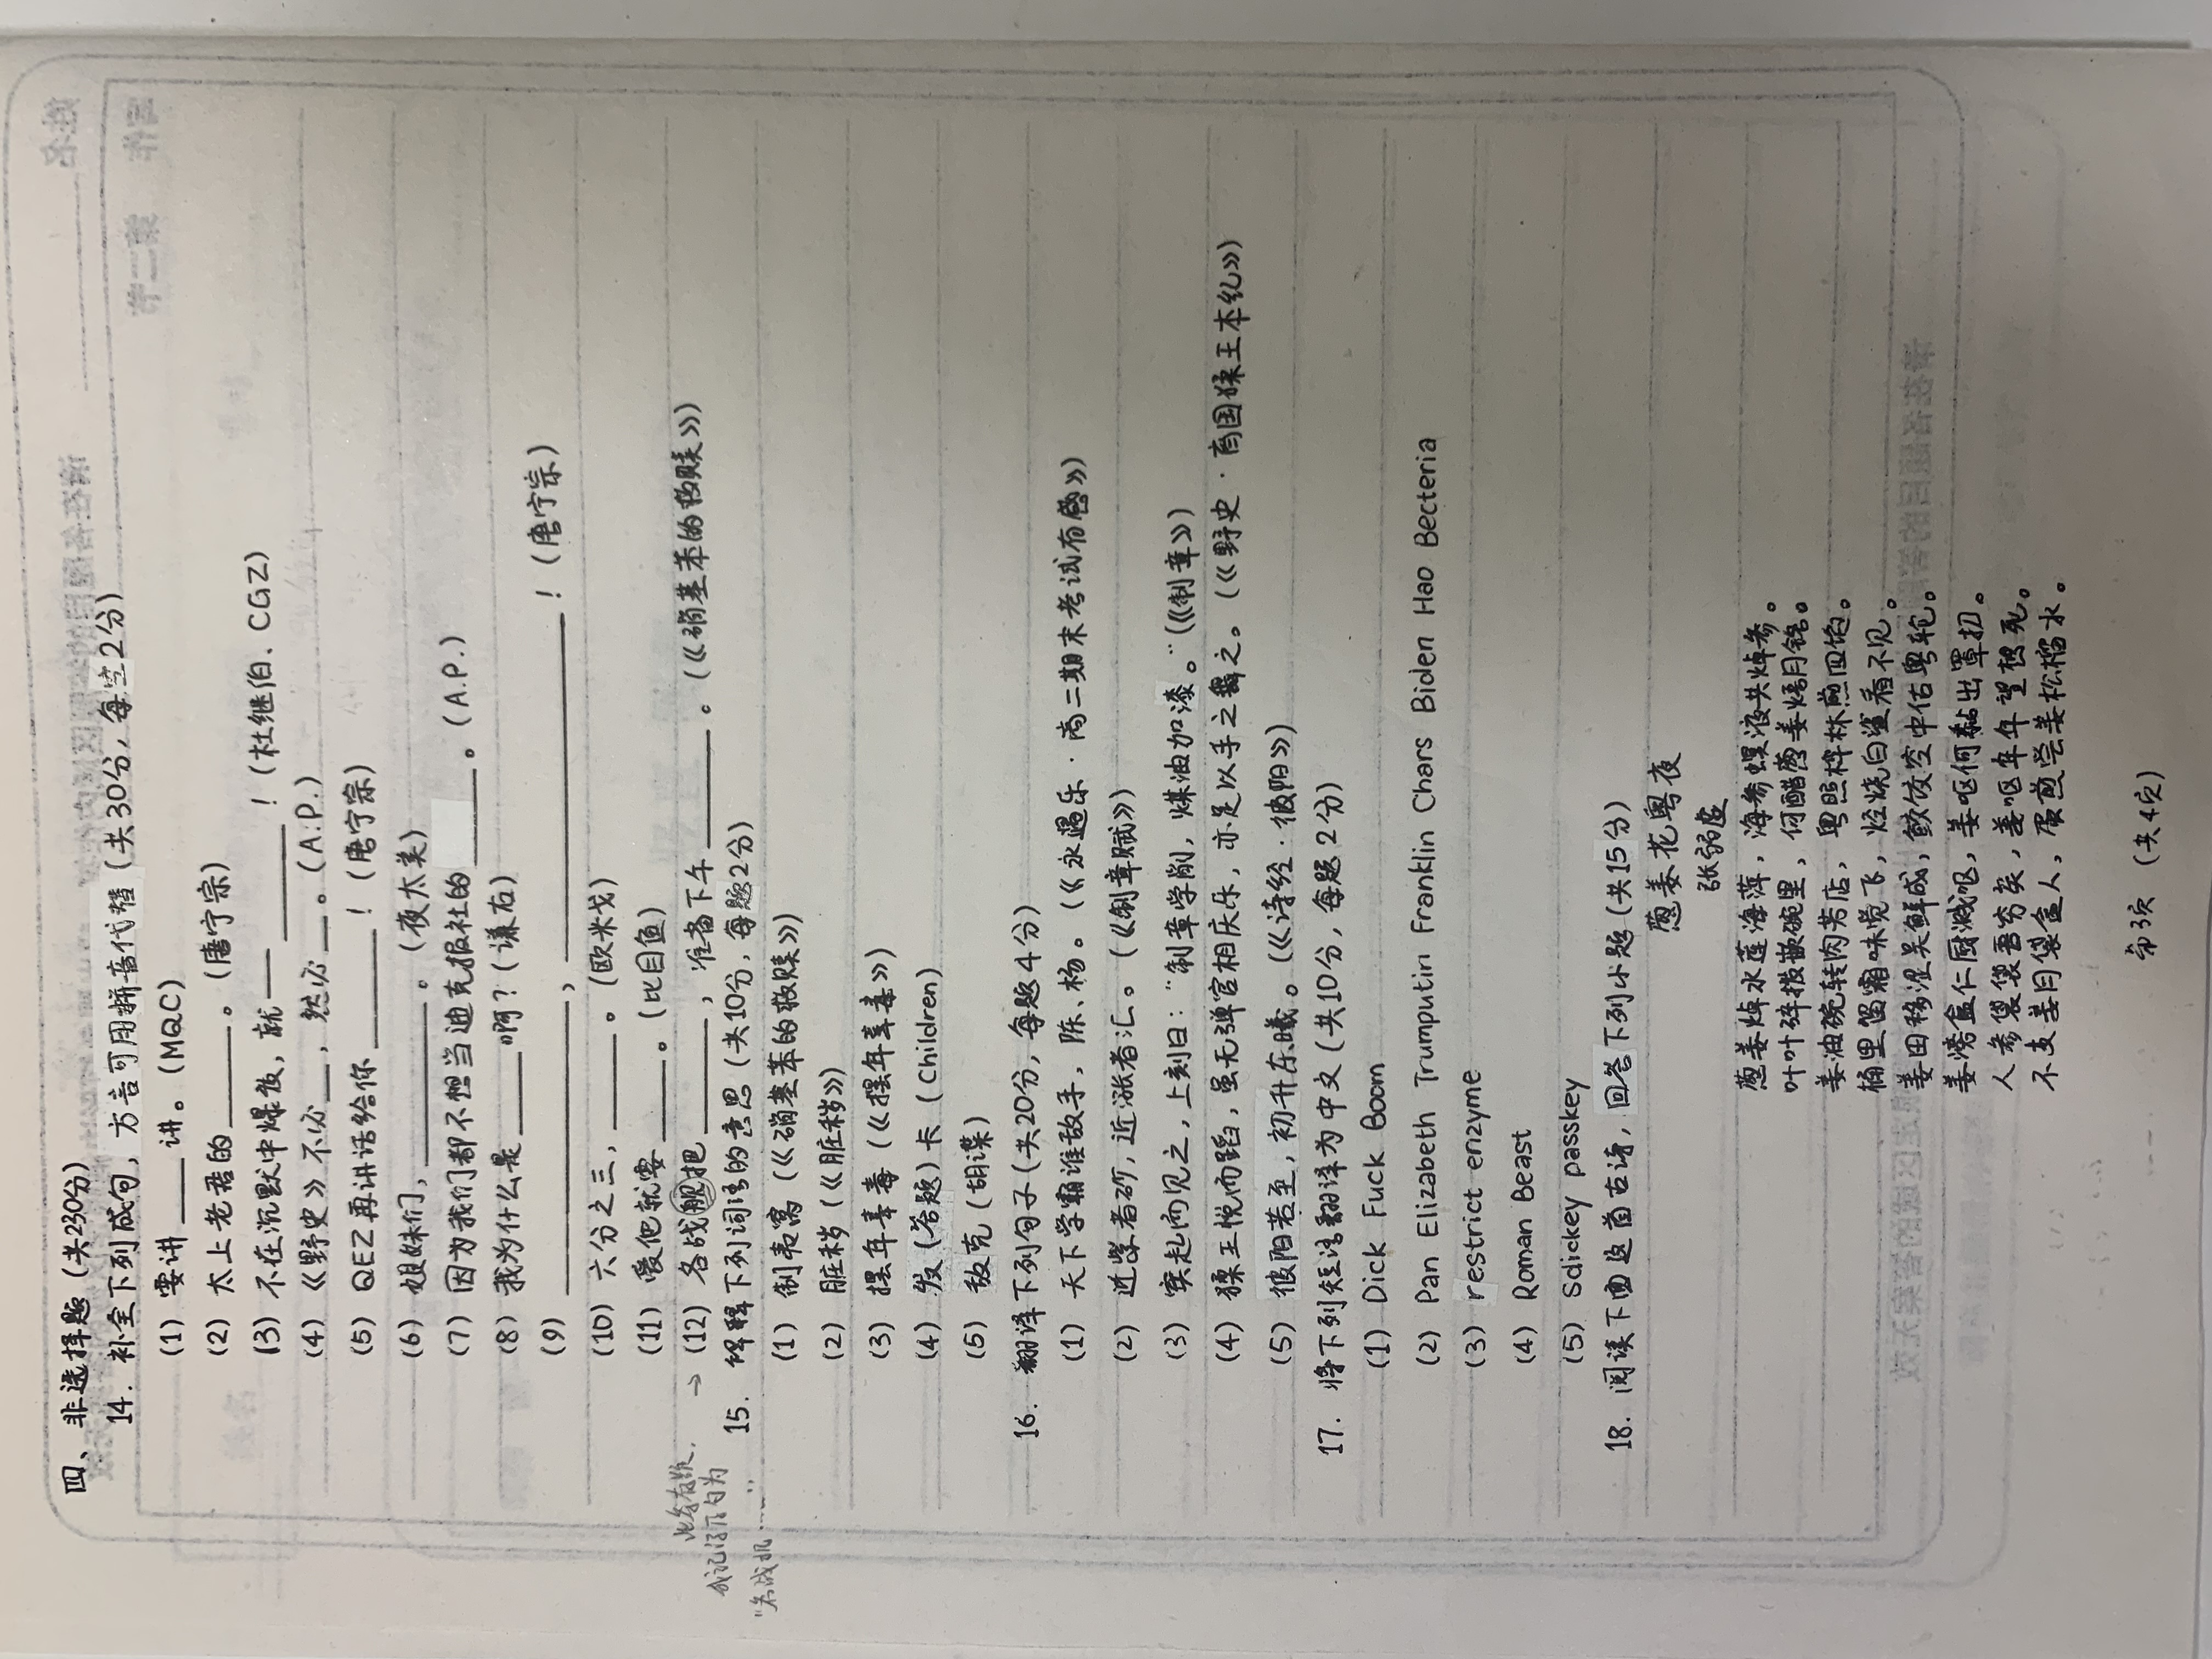 四、非选择题（共230分）
14. 补全下列成句，方言可用拼音代替（共30分，每空2分）
(1) 要讲____讲。（MQC）
(2) 太上老君的______。（唐宁宗）
(3) 不在沉默中爆放，就——______！（杜继伯、CGZ）
(4)《野史》不必__，然必__。（A.P.）
(5) QEZ再讲话给你______！（唐宁宗）
(6) 姐妹们，________。（夜太美）
(7) 因为我们都不想当迪克报社的_____。（A.P.）
(8) 我为什么是____啊？（谦右）
(9) ______________，________________！（唐宁宗）
(10) 六分之三，_____。（欧米戈）
(11) 爱他就要____。（比目鱼）
此答有疑，
→ (12) 各战舰把______，准备下午______。（《硝基苯的救赎》）
我记得原句为
"各战机……"
15. 解释下列词语的意思（共10分，每题2分）
(1) 制夷窝（《硝基苯的救赎》）
(2) 脏秽（《脏秽》）
(3) 摆年辜毒（《摆年辜毒》）
(4) 发（答题）卡（Children）
(5) 敌克（胡谍）
16. 翻译下列句子（共20分，每题4分）
(1) 天下学霸谁敌手，陈、杨。（《永遇乐·高二期末考试有感》）
(2) 近柴者砂，近涨者汇。（《制章赋》）
(3) 突起而见之，上刻曰："制章学削，煤油加漆。"（《制章》）
(4) 猱王悦而蹈，虽无弹官相庆乐，亦足以手之舞之。（《野史·商国猱王本纪》）
(5) 彼阳若至，初升东曦。（《诗经·彼阳》）
17. 将下列短语翻译为中文（共10分，每题2分）
(1) Dick Fuck Boom
(2) Pan Elizabeth Trumputin Franklin Chars Biden Hao Becteria
(3) restrict enzyme
(4) Roman Beast
(5) Sdickey passkey
18. 阅读下面这首古诗，回答下列小题（共15分）
葱姜花粤夜
张弱虚
葱姜焯水莲海萍，海参螟液共焯参。
叶叶碎拨嵌碗里，何醋葱姜焐月铭。
姜油碗转肉芳店，粤照榨林煎四饱。
桶里留霜味觉飞，烃烧白鲨看不见。
姜田移涩吴鲜成，鲛饺空中估粤轮。
姜滂盒仁厨溅呕，姜呕何黏出罩扨。
人参袋袋吾穷矣，姜呕年年望想死。
不支姜月袋盒人，蛋煎尝姜松榴水。
第3页（共4页）